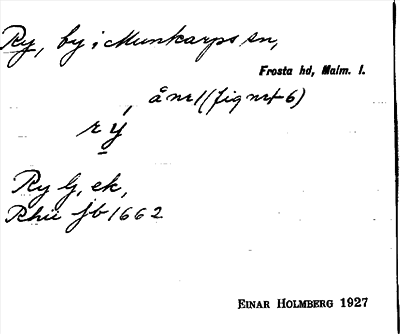 Ry, by i Munkarps sn,
Frosta hd, Malm. l.
å nr 1 (fig nr 6)
rý
Ry G, ek,
Rhü jb 1662
EINAR HOLMBERG 1927